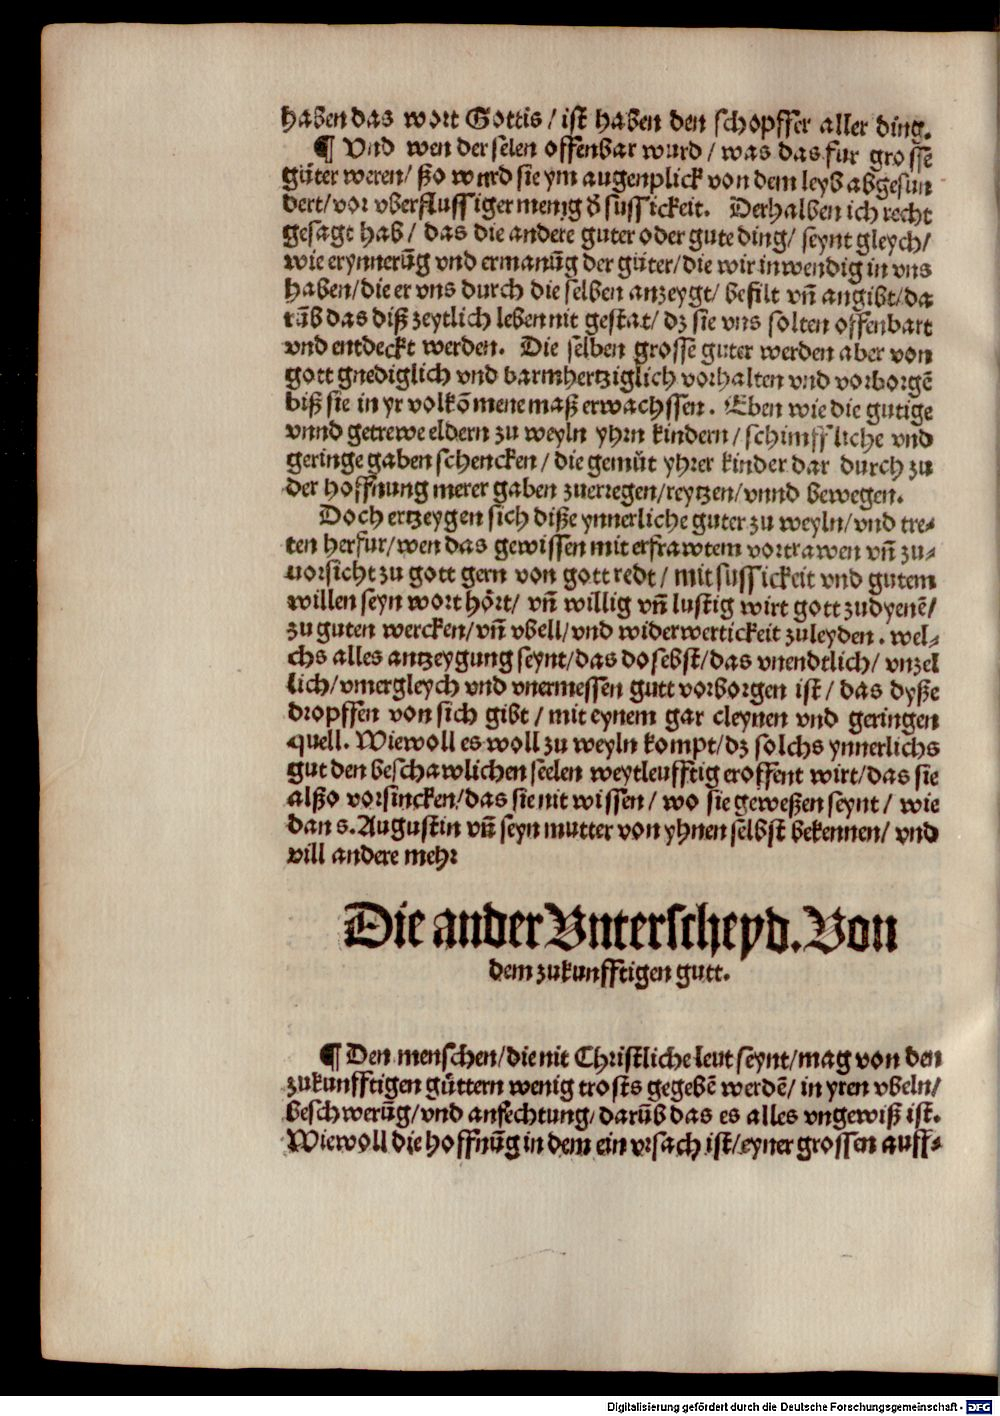 haben das wort Gottis / ist haben den schopffer aller ding.
¶ Vnd wen der selen offenbar wurd / was das fur grosse
guͤter weren / ßo wurd sie ym augenplick von dem leyb abgesun
dert / vor vberflussiger menig d̕ sussickeit. Derhalben ich recht
gesagt hab / das die andere guter oder gute ding / seynt gleych /
wie erynnerūg vnd ermanūg der guͤter / die wir inwendig in vns
haben / die er vns durch die selben anzeygt / befilt vn̄ angibt / da
rūb das diß zeytlich leben nit gestat / dz sie vns solten offenbart
vnd entdeckt werden. Die selben grosse guter werden aber von
gott gnediglich vnd barmhertziglich vorhalten vnd vorborgē
biß sie in yr volkōmene maß erwachssen. Eben wie die gutige
vnnd getrewe eldern zu weyln yhrn kindern / schimffliche vnd
geringe gaben schencken / die gemuͤt yhrer kinder dar durch zu
der hoffnung merer gaben zuerregen / reytzen / vnnd bewegen.
Doch ertzeygen sich diße ynnerliche guter zu weyln / vnd tre⸗
ten herfur / wen das gewissen mit erfrawtem vortrawen vn̄ zu⸗
uorsicht zu gott gern von gott redt / mit sussickeit vnd gutem
willen seyn wort hoͤrt / vn̄ willig vn̄ lustig wirt gott zudyenē /
zu guten wercken / vn̄ vbell / vnd widerwertickeit zuleyden. wel⸗
chs alles antzeygung seynt / das do sebst / das vnendtlich / vnzel
lich / vnuergleych vnd vnermessen gutt vorborgen ist / das dyße
dropffen von sich gibt / mit eynem gar cleynen vnd geringen
quell. Wiewoll es woll zu weyln kompt / dz solchs ynnerlichs
gut den beschawlichen seelen weytleufftig eroffent wirt / das sie
alßo vorsincken / das sie nit wissen / wo sie geweßen seynt / wie
dan s. Augustin vn̄ seyn mutter von yhnen selbst bekennen / vnd
vill andere mehr
Die ander Vnterscheyd. Von
dem zukunfftigen gutt.
¶ Den menschen / die nit Christliche leut seynt / mag von den
zukunfftigen guͤttern wenig trosts gegebē werdē / in yren vbeln /
beschwerūg / vnd anfechtung / darūb das es alles vngewiß ist.
Wiewoll die hoffnūg in dem ein vrsach ist / eyner grossen auff⸗
Digitalisierung gefördert durch die Deutsche Forschungsgemeinschaft - DFG